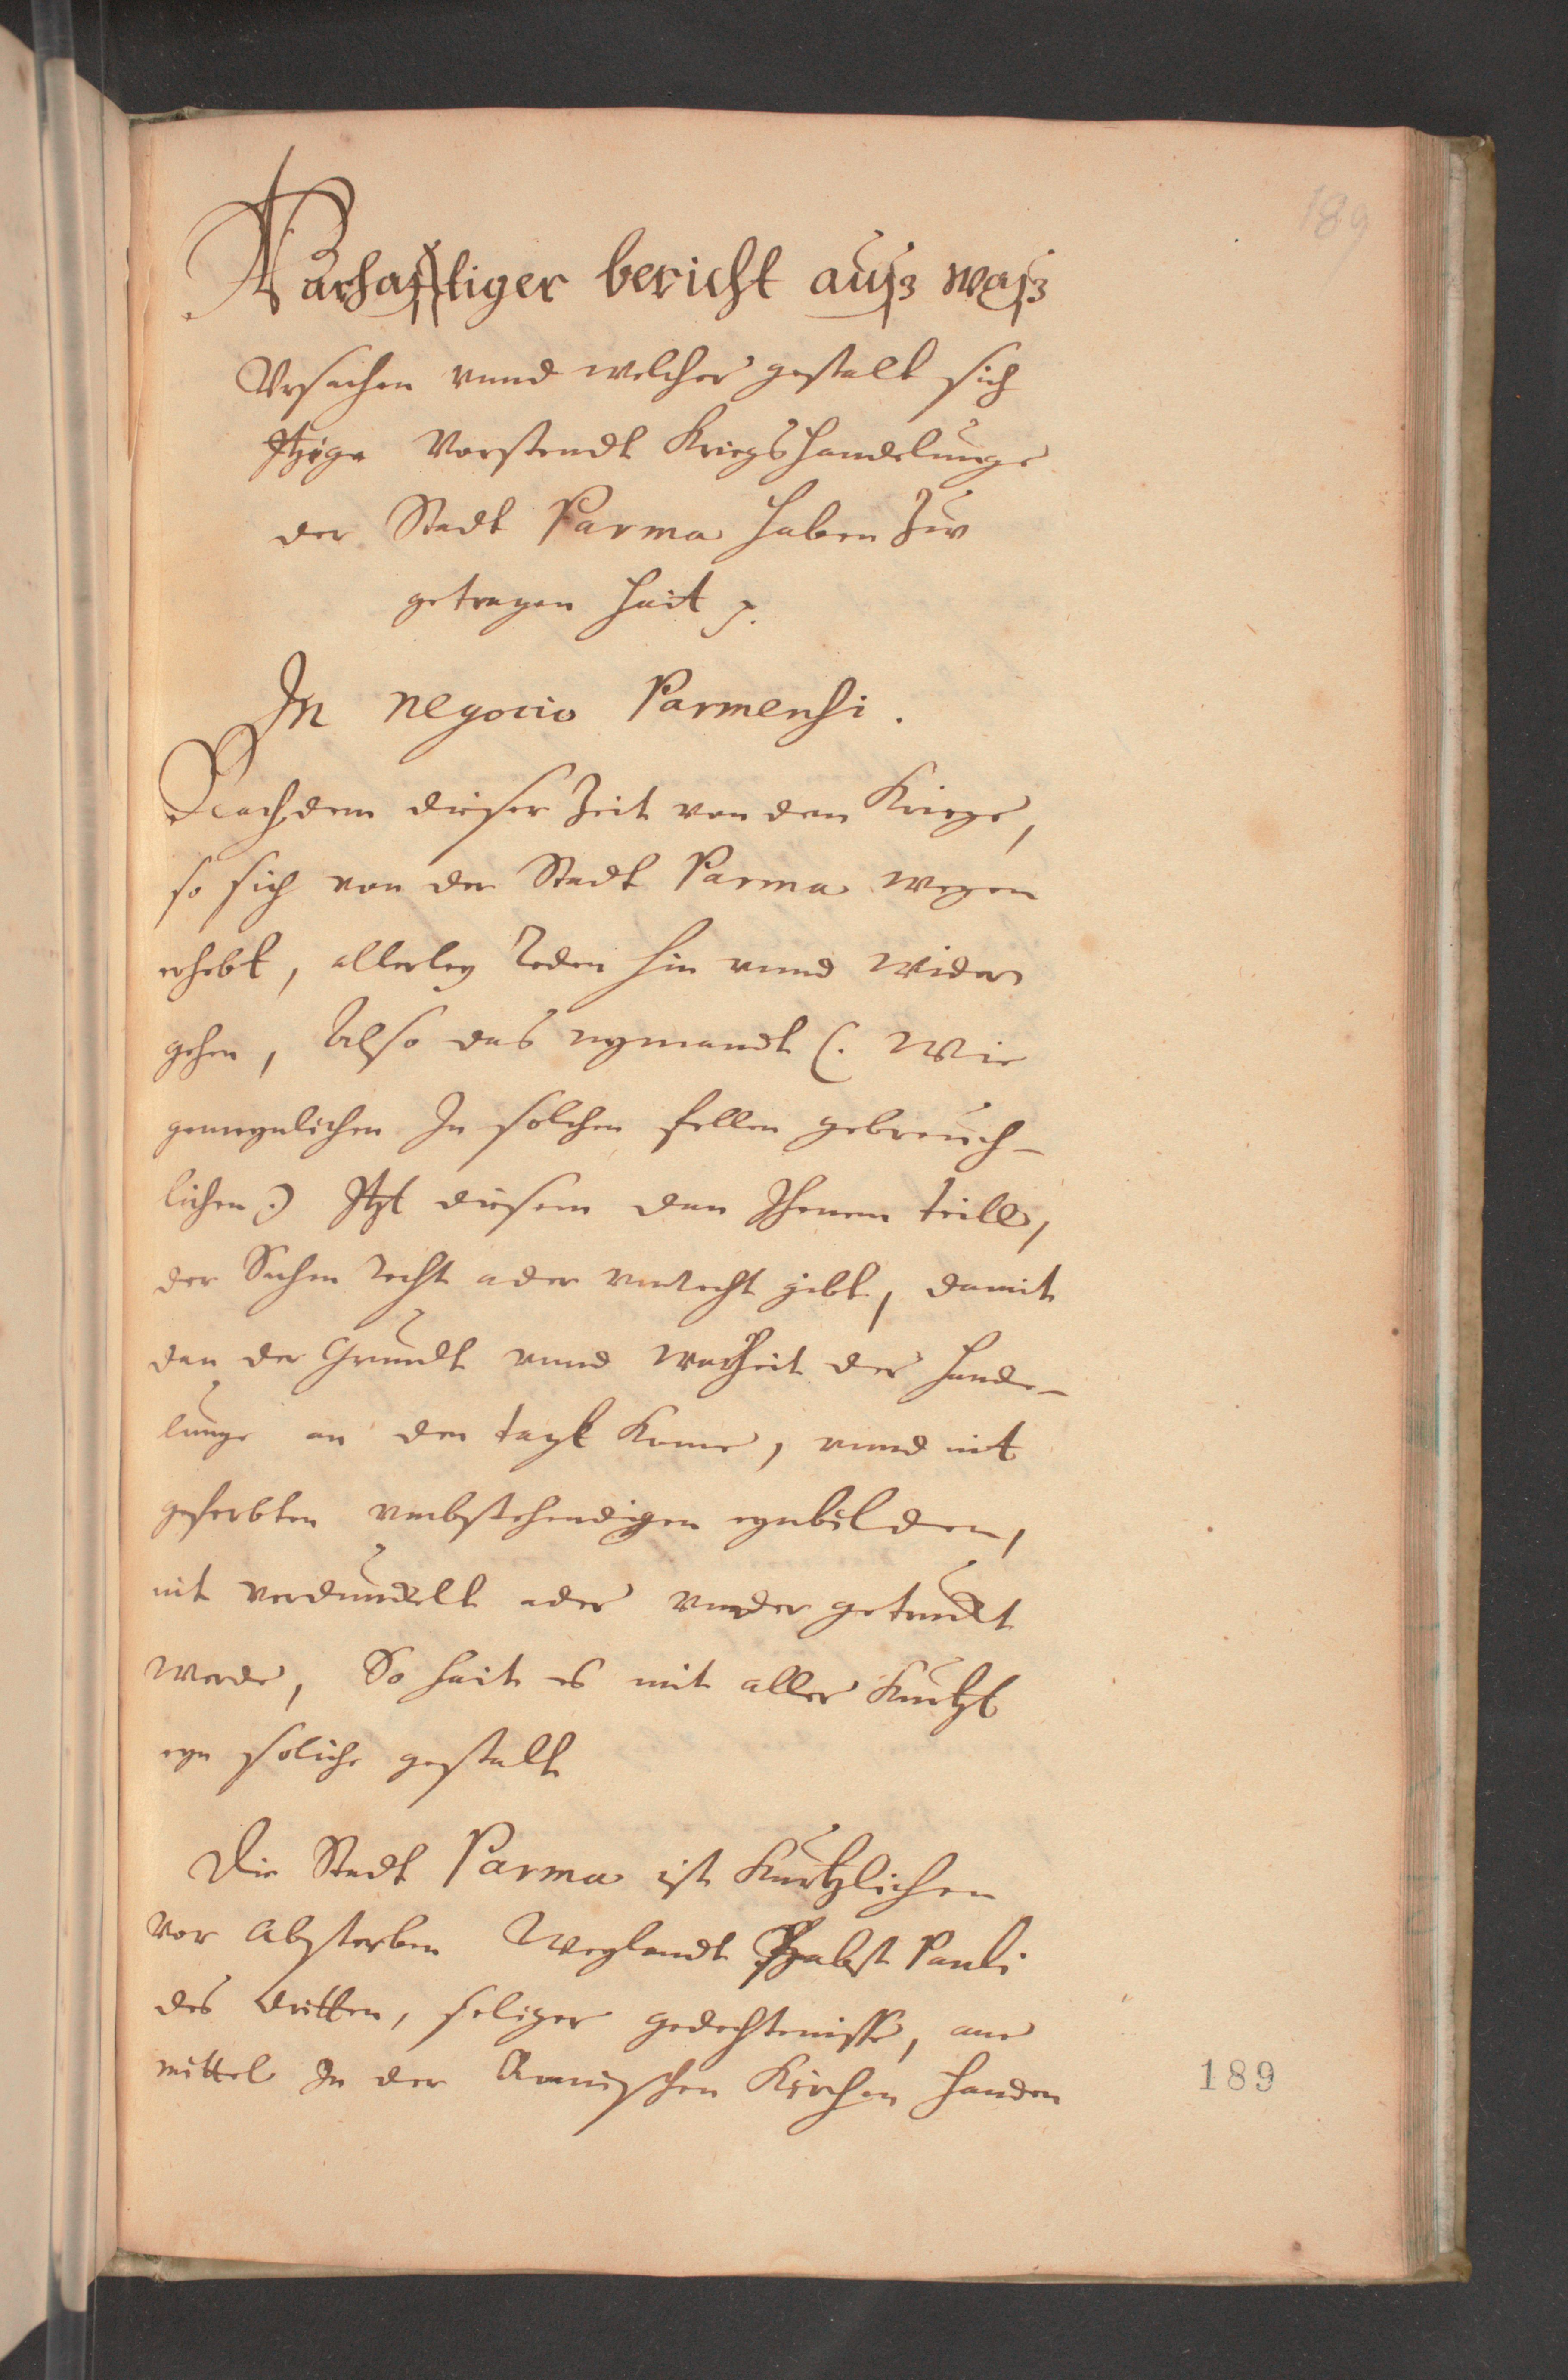 189
Warhafftiger bericht auß waß
Vrsachen vnnd welcher gestalt sich
Itzige Vorstendt Kriegshandelunge
der Stadt Parma haben zu
getragen hait p.
In negocio Parmensi.
Nachdem dieser Zeit von dem Kriege,
so sich von der Stadt Parma wegen
erhebt, allerley Reden hin vnnd wider
gehen, Also das nymandt (. Wie
gemeynlichen In solchen fellen gebreuch-
lichen .) Itzt diesem dan Jhenem teill,
der Sachen recht ader vnrecht gibt, damit
dan der Grundt vnnd warheit der hande-
lunge an den tagk kome, vnnd nit
geferbten vmbstehendigen eynbilden,
nit verdunckelt ader vnder getruckt
werde, So hait es mit aller kurtzt
eyn soliche gestalt
Die Stadt Parma ist kurtzlichen
vor Absterben Weylandt Phabst Pauli
des dritten, seliger gedechtenisse, ane
mittel In der Romischen Kirchen handen
189